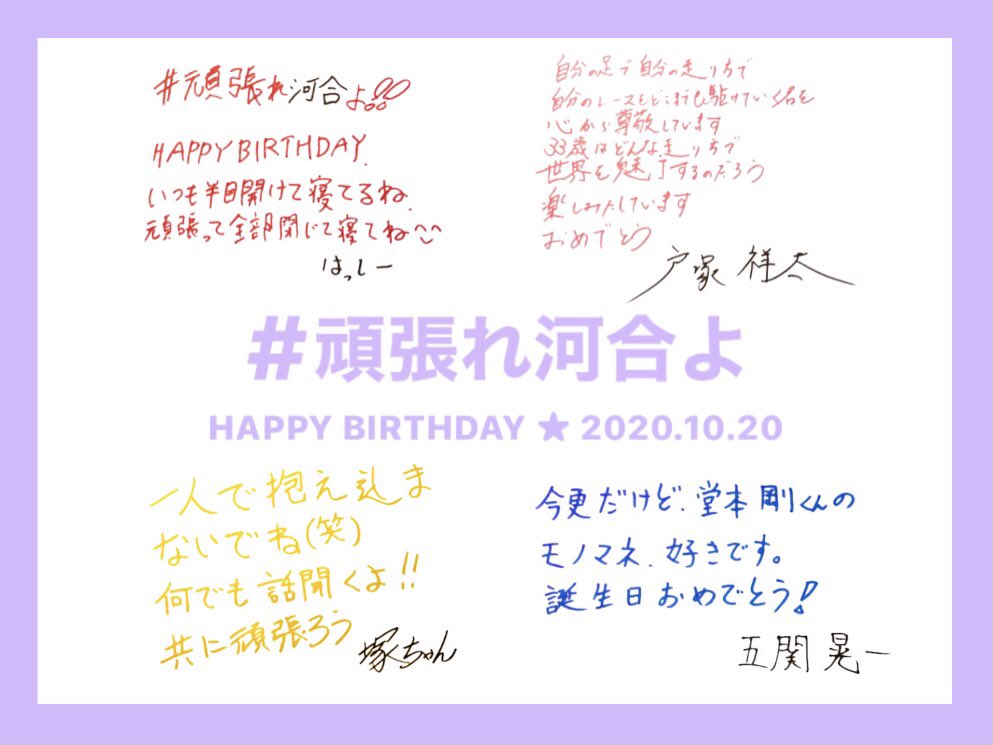 #頑張れ河合よ!!
HAPPY BIRTHDAY.
いつも半目開けて寝てるね.
頑張って全部閉じて寝てね
はっしー
自分の足で自分の走りちで
自分のレースをどこまでも駆けていく君を
心から尊敬しています
33歳はどんな走りちで
世界を魅了するのだろう
楽しみにしています
おめでとう
戸塚 祥太
#頑張れ河合よ
HAPPY BIRTHDAY ★ 2020.10.20
一人で抱え込ま
ないでね(笑)
何でも話聞くよ!!
共に頑張ろう
塚ちゃん
今更だけど.堂本剛くんの
モノマネ.好きです。
誕生日おめでとう!
五関 晃一